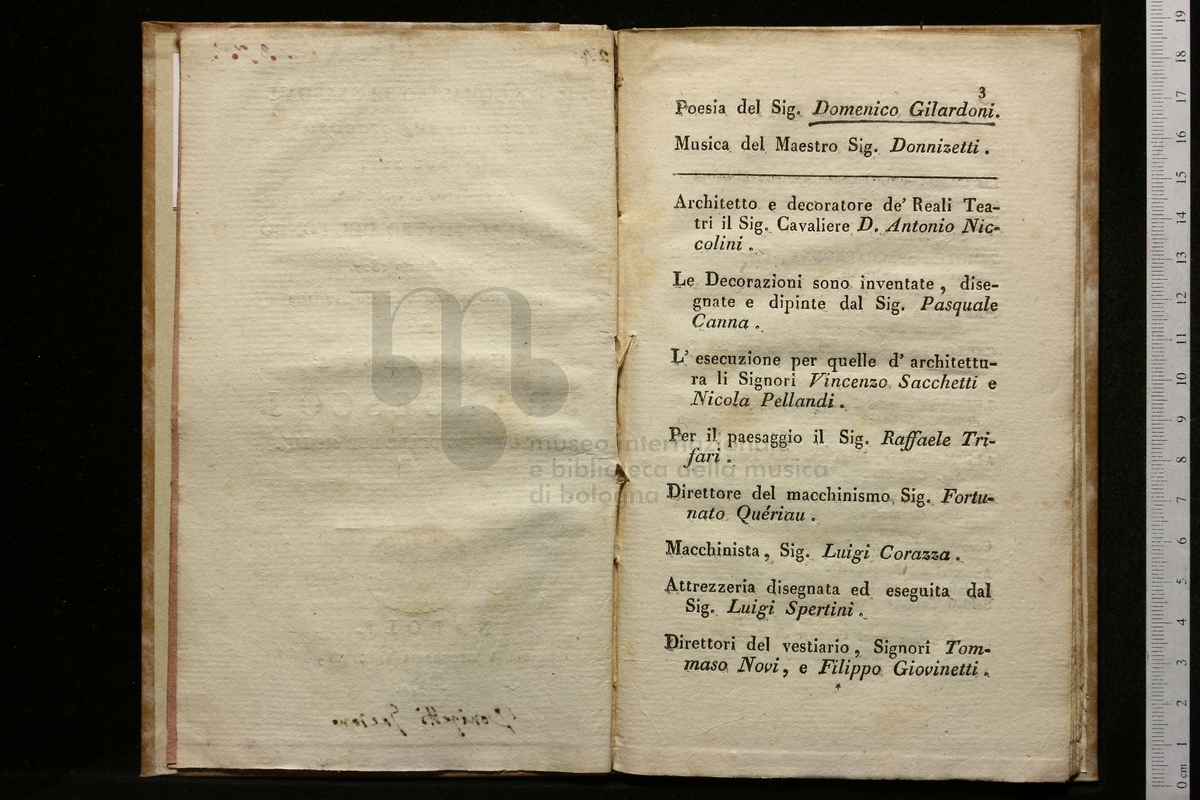 3
Poesia del Sig. Domenico Gilardoni.
Musica del Maestro Sig. Donnizetti .
Architetto e decoratore de' Reali Tea-
tri il Sig. Cavaliere D. Antonio Nic-
colini .
Le Decorazioni sono inventate , dise-
gnate e dipinte dal Sig. Pasquale
Canna .
L' esecuzione per quelle d' architettu-
ra li Signori Vincenzo Sacchetti e
Nicola Pellandi .
Per il paesaggio il Sig. Raffaele Tri-
fari .
Direttore del macchinismo, Sig. Fortu-
nato Quériau .
Macchinista , Sig. Luigi Corazza .
Attrezzeria disegnata ed eseguita dal
Sig. Luigi Spertini .
Direttori del vestiario , Signori Tom-
maso Novi , e Filippo Giovinetti .
*
museo internazionale
e biblioteca della musica
di bologna
0 cm 1 2 3 4 5 6 7 8 9 10 11 12 13 14 15 16 17 18 19